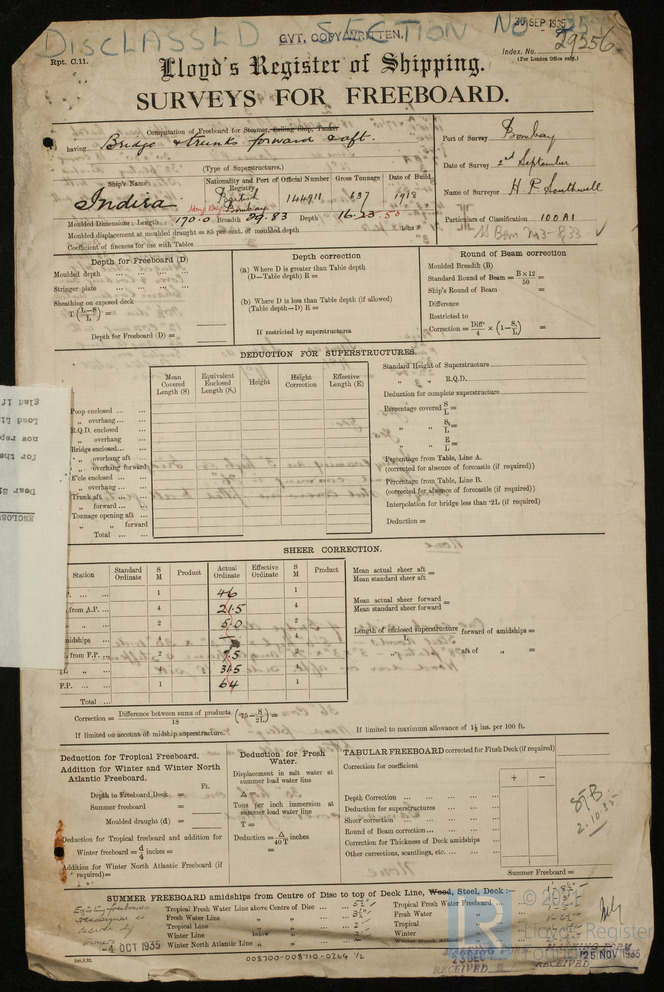 DISCLASSED SECTION No
GVT. COPY WRITTEN.
30 SEP 1935
Rpt. C.11.
Index. No. 29556
(For London Office only.)
Lloyd's Register of Shipping.
SURVEYS FOR FREEBOARD.
Computation of Freeboard for Steamer, Sailing Ship, Tanker
having Bridge & trunks forward & aft.
(Type of Superstructures.)
Port of Survey Bombay
Date of Survey 2nd September
Name of Surveyor H. P. Southwell
Particulars of Classification 100 A1
Ship's Name
Nationality and Port of Registry
Official Number
Gross Tonnage
Date of Build
Indira
British
Bombay
144911
637
1918
Moulded Dimensions: Length 170.0 Breadth 29.83 Depth 16.23 .50
Moulded displacement at moulded draught = 85 per cent. of moulded depth
Coefficient of fineness for use with Tables
Depth for Freeboard (D)
Moulded depth
Stringer plate
Sheathing on exposed deck
T (L—S / L) =
Depth for Freeboard (D) =
Depth correction
(a) Where D is greater than Table depth
(D—Table depth) R =
(b) Where D is less than Table depth (if allowed)
(Table depth—D) R =
If restricted by superstructures
Round of Beam correction
Moulded Breadth (B)
Standard Round of Beam = B × 12 / 50 =
Ship's Round of Beam =
Difference
Restricted to
Correction = Diffce / 4 × (1 — S1 / L) =
DEDUCTION FOR SUPERSTRUCTURES.
Mean Covered Length (S)
Equivalent Enclosed Length (S1)
Height
Height Correction
Effective Length (E)
Poop enclosed
„ overhang
R.Q.D. enclosed
„ overhang
Bridge enclosed
„ overhang aft
„ overhang forward
F'cle enclosed
„ overhang
Trunk aft
„ forward
Tonnage opening aft
„ „ forward
Total
Standard Height of Superstructure
„ „ R.Q.D.
Deduction for complete superstructure
Percentage covered S / L =
„ „ S1 / L =
„ „ E / L =
Percentage from Table, Line A.
(corrected for absence of forecastle (if required))
Percentage from Table, Line B.
(corrected for absence of forecastle (if required))
Interpolation for bridge less than ·2L (if required)
Deduction =
SHEER CORRECTION.
Station
Standard Ordinate
S M
Product
Actual Ordinate
Effective Ordinate
S M
Product
P. 1 46 1
from A.P. 4 21.5 4
„ 2 5.0 2
midships 4 4
from F.P. 2 7.5 2
„ 4 31.5 4
F.P. 1 64 1
Total
Mean actual sheer aft / Mean standard sheer aft =
Mean actual sheer forward / Mean standard sheer forward =
Length of enclosed superstructure forward of amidships =
„ aft of „ =
Correction = Difference between sums of products / 18 (·75 — S / 2L) =
If limited on account of midship superstructure.
If limited to maximum allowance of 1½ ins. per 100 ft.
Deduction for Tropical Freeboard.
Addition for Winter and Winter North Atlantic Freeboard.
Ft.
Depth to Freeboard Deck =
Summer freeboard =
Moulded draught (d) =
Deduction for Tropical freeboard and addition for
Winter freeboard = d / 4 inches =
Addition for Winter North Atlantic Freeboard (if required) =
Deduction for Fresh Water.
Displacement in salt water at summer load water line
Δ =
Tons per inch immersion at summer load water line
T =
Deduction = Δ / 40T inches
=
TABULAR FREEBOARD corrected for Flush Deck (if required)
Correction for coefficient
+ —
Depth Correction
Deduction for superstructures
Sheer correction
Round of Beam correction
Correction for Thickness of Deck amidships
Other corrections, scantlings, etc.
Summer Freeboard =
2.10.35
SUMMER FREEBOARD amidships from Centre of Disc to top of Deck Line, Wood, Steel, Deck:—
Tropical Fresh Water Line above Centre of Disc
Fresh Water Line „ „
Tropical Line „ „
Winter Line below „
Winter North Atlantic Line „ „
Tropical Fresh Water Freeboard
Fresh Water „
Tropical „
Winter „
4 OCT 1935
008700-008710-0264 1/2
RECEIVED
RECEIVED 25 NOV 1935
LR
© 2021
Lloyd's Register
Foundation